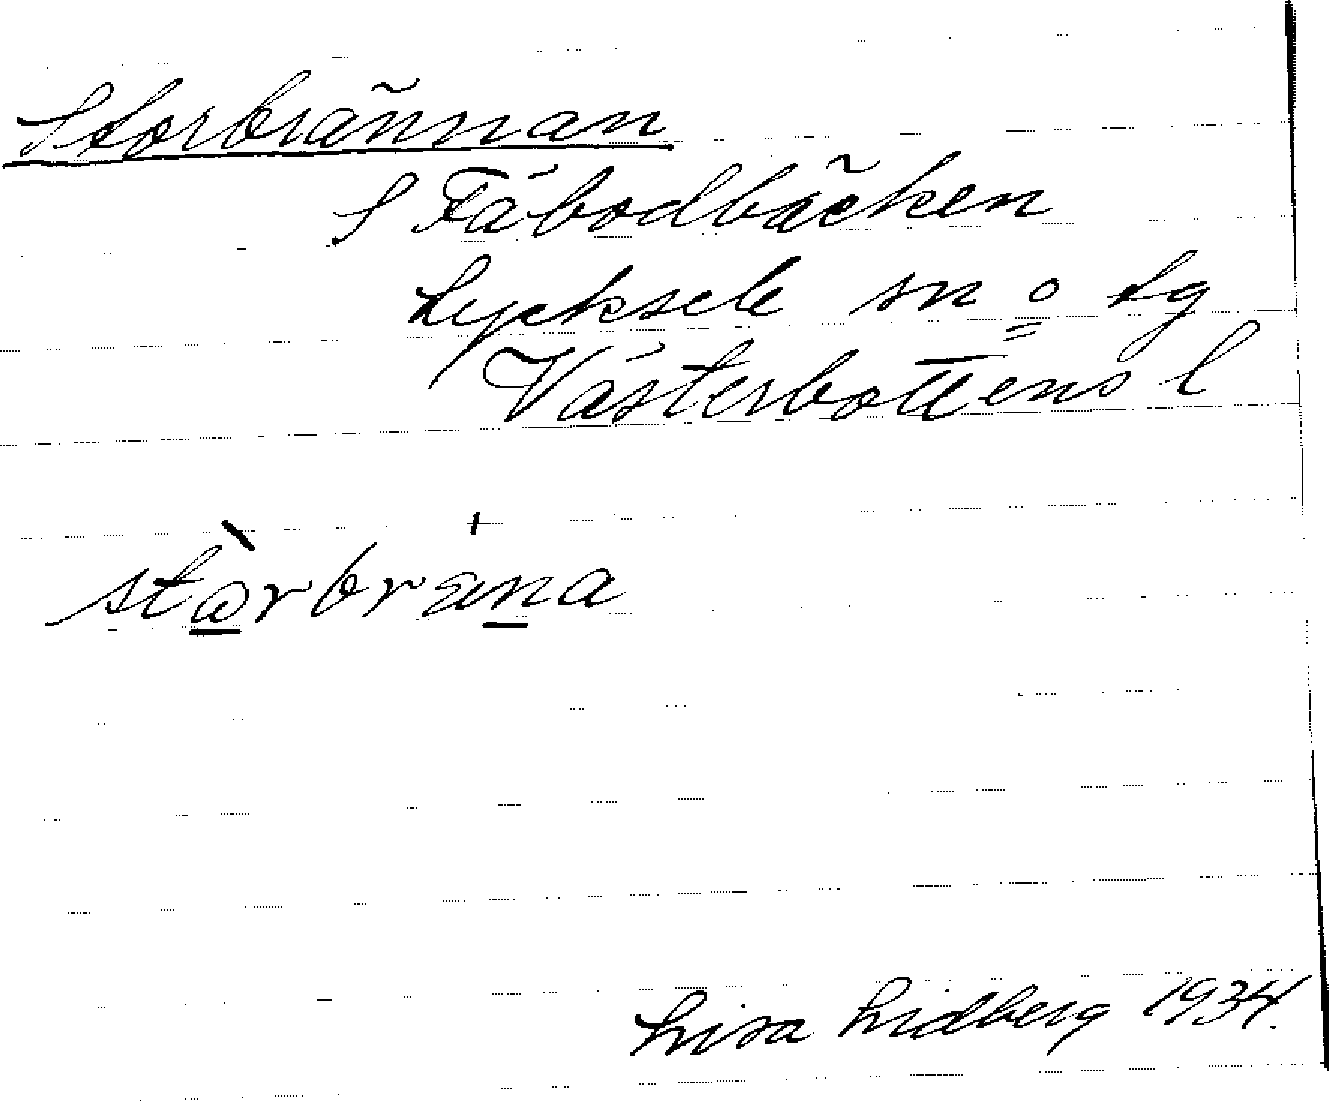 Storbrännan
S Fäbodbäcken
Lycksele sn o lg
Västerbottens l
stòrbräna
Lisa Lidberg 1934.